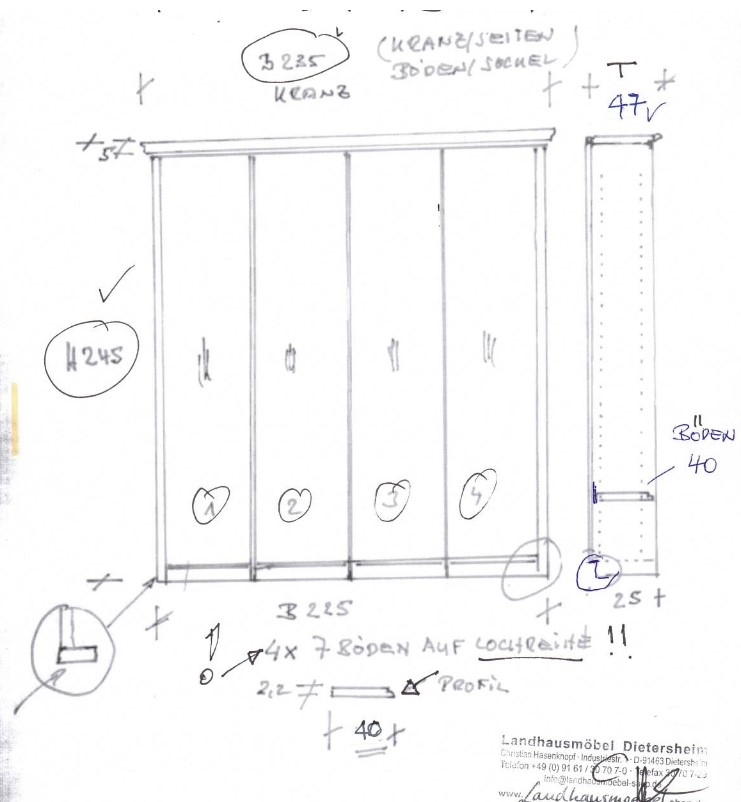 B 235 (KRANZ/SEITEN
KRANZ BÖDEN/SOCKEL)
T
47
5
H 245
BÖDEN
40
1 2 3 4
B 225
25
! 4x 7 BÖDEN AUF LOCHREIHE !!
2,2 PROFIL
40
Landhausmöbel Dietersheim
Christian Hasenknopf · Industriestr. · D-91463 Dietersheim
Telefon +49 (0) 91 61 / 30 70 7-0 · Telefax 30 70 7-
www.